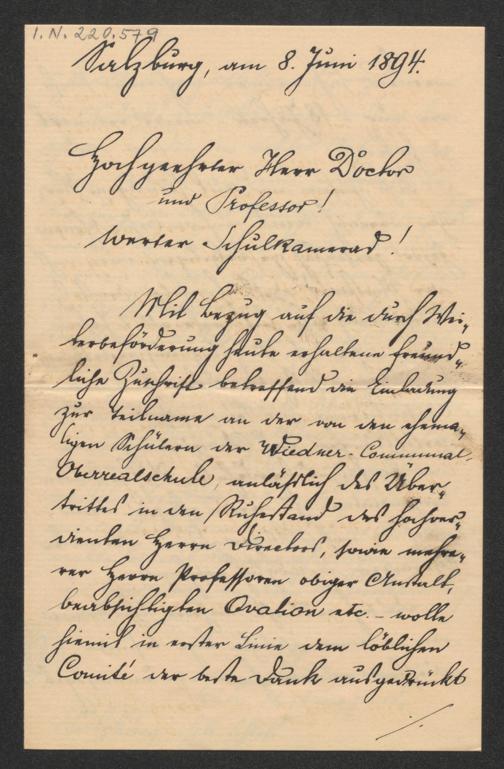 I. N. 220.579
Salzburg, am 8. Juni 1894.
Hochgeehrter Herr Doctor
und Professor!
Werter Schulkamerad!
Mit Bezug auf die durch Wei-
terbeförderung heute erhaltene freund-
liche Zuschrift betreffend die Einladung
zur Teilname an der von den ehema-
ligen Schülern der Wiedner-Communal-
Oberrealschule, anläßlich des Über-
trittes in den Ruhestand des hochver-
dienten Herrn Directors, sowie mehre-
rer Herrn Professoren obiger Anstalt,
beabsichtigten Ovation etc. – wolle
hiemit in erster Linie dem löblichen
Comité der beste Dank ausgedrückt
./.